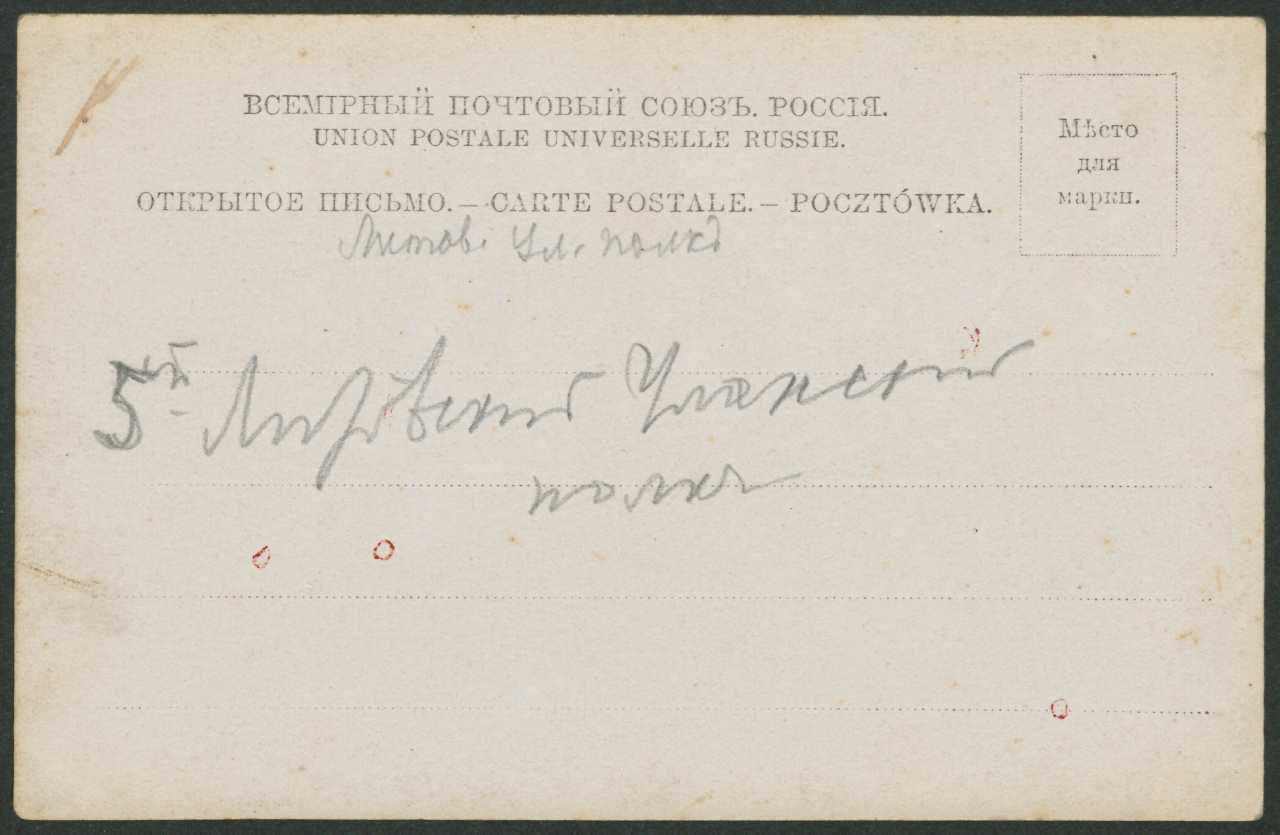 ВСЕМІРНЫЙ ПОЧТОВЫЙ СОЮЗЪ. РОССІЯ.
UNION POSTALE UNIVERSELLE RUSSIE.
ОТКРЫТОЕ ПИСЬМО. – CARTE POSTALE. – POCZTÓWKA.
Мѣсто
для
марки.
Литов. Ул. полкъ
5ый Литовский Уланский
полкъ